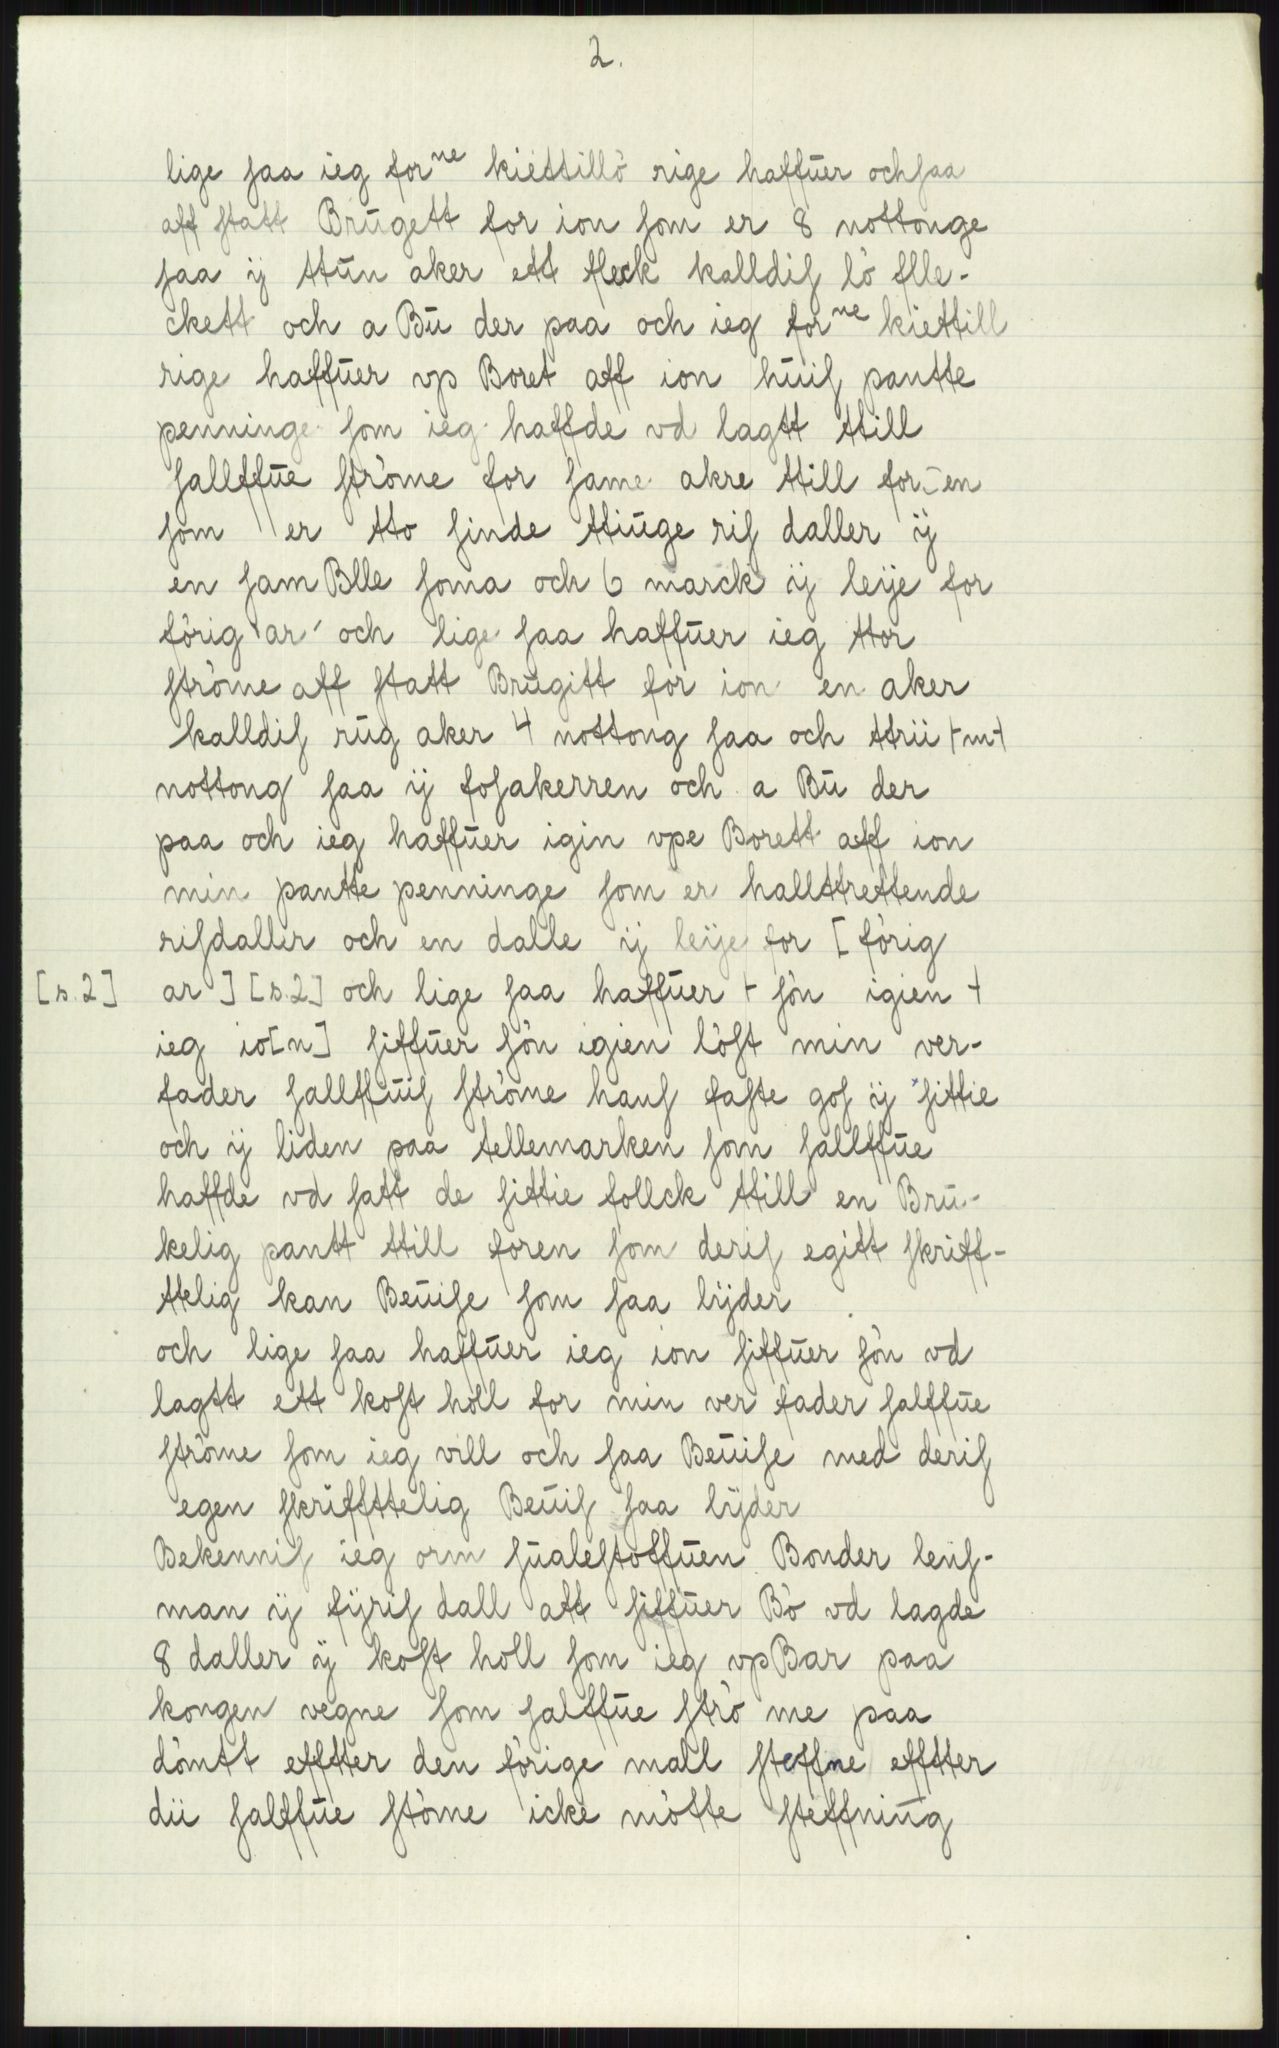 2.
lige ſaa ieg forne kiettillò rige haffũer ochſaa
aff ſtatt Brũgett for ion ſom er 8 nottonge
ſaa ÿ ttũn aker ett fleck kalldiſ lò flle-
ckett och a Bũ der paa och ieg forne kiettill
rige haffũer vp Boret aff ion hũiſ pantte
penninge ſom ieg haffde vd lagtt ttill
ſallffũe ſtròme for ſame akre ttill for-en
ſom er tto ſinde ttiũge riſ daller ÿ
en ſam Blle ſoma och 6 marck ÿ leÿe for
fòrig ar och lige ſaa haffũer ieg ttor
ſtròme aff ſtatt Brũgitt for ion en aker
kalldiſ rũg aker 4 nottong ſaa och ttrii +m+
nottong ſaa ÿ foſakerren och a Bũ der
paa och ieg haffũer igin vpe Borett aff ion
min pantte penninge ſom er hallttrettende
riſdallir och en dalle ÿ leÿe for [ fòrig
[s.2] ar ] [s.2] och lige ſaa haffũer + ſòn igien +
ieg io[n] ſiffũer ſòn igien lòſt min ver-
fader ſallffũiſ ſtròme hanſ faſte goſ ÿ ſittie
och ÿ liden paa tellemarken ſom ſallffũe
haffde vd ſatt de ſittie follck ttill en Brũ-
kelig pantt ttill foren ſom deriſ egitt ſkriff-
ttelig kan Beũiſe ſom ſaa lÿder
och lige ſaa haffũer ieg ion ſiffũer ſòn vd
lagtt ett koſt holl for min ver fader ſalffũe
ſtròme ſom ieg vill och ſaa Beũiſe med deriſ
egen ſkriffttelig Beũiſ ſaa lÿder
Bekenniſ ieg orm ſũaleſtoffũen Bonder lenſ-
man ÿ fÿriſ dall att ſiffũer Bò vd lagde
8 daller ÿ koſt holl ſom ieg vpBar paa
kongen vegne ſom ſalffũe ſtrò me paa
dòmtt effter den fòrige mall ſteffne effter
dii ſalffũe ſtòme icke mòtte ſteffning